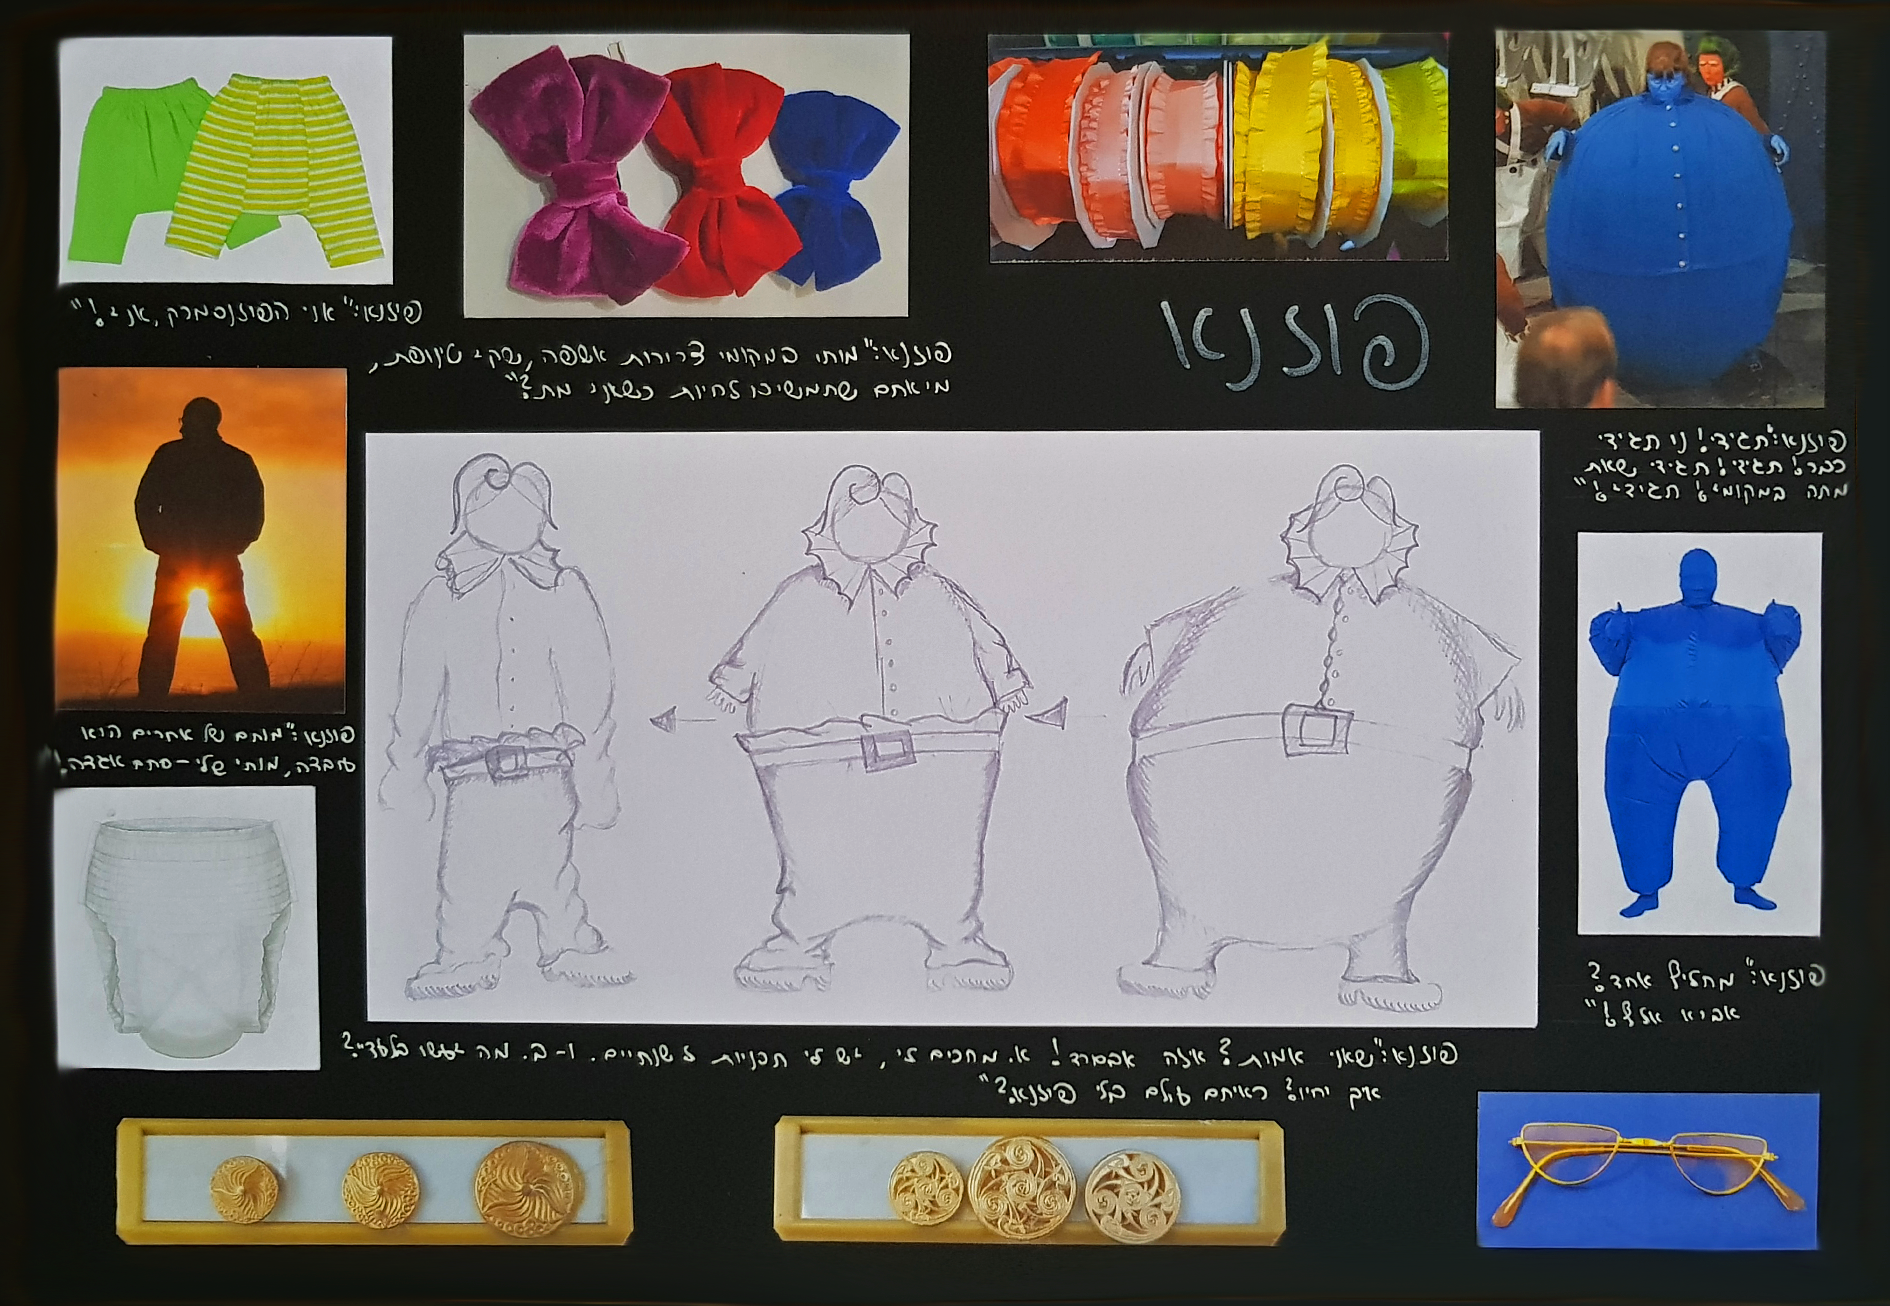 פוזנא
פוזנא:"אני הפוזנסמרק, אני!"
פוזנא:"מותו במקומי צרורות אשפה, שקי טינופת,
מי אתם שתמשיכו לחיות כשאני מת?"
פוזנא:"תגידי! נו תגידי
כבר! תגידי! תגידי שאת
מתה במקומי! תגידי!"
פוזנא:"מותם של אחרים הוא
עובדה, מותי שלי - סתם אגדה!"
פוזנא:"מחליף אחד?
אביא אלף!"
פוזנא:"שאני אמות? איזה אבסורד! א. מחכים לי, יש לי תכניות לשנתיים. ו-ב. מה יעשו בלעדיי?
איך יחיו? ראיתם עולם בלי פוזנא?"